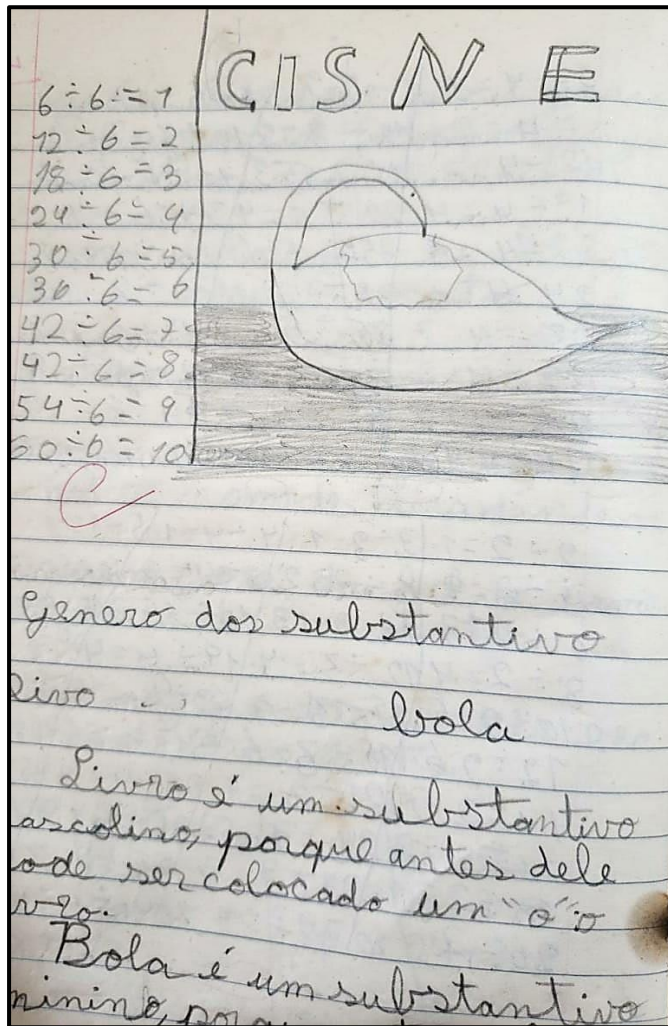 CISNE
6÷6=1
12÷6=2
18÷6=3
24÷6=4
30÷6=5
36÷6=6
42÷6=7
42÷6=8
54÷6=9
60÷6=10
C
Genero dos substantivo
livo bola
Livro é um substantivo
ascolino, porque antes dele
ode ser colocado um "o" o
vro.
Bola é um substantivo
minino, porq